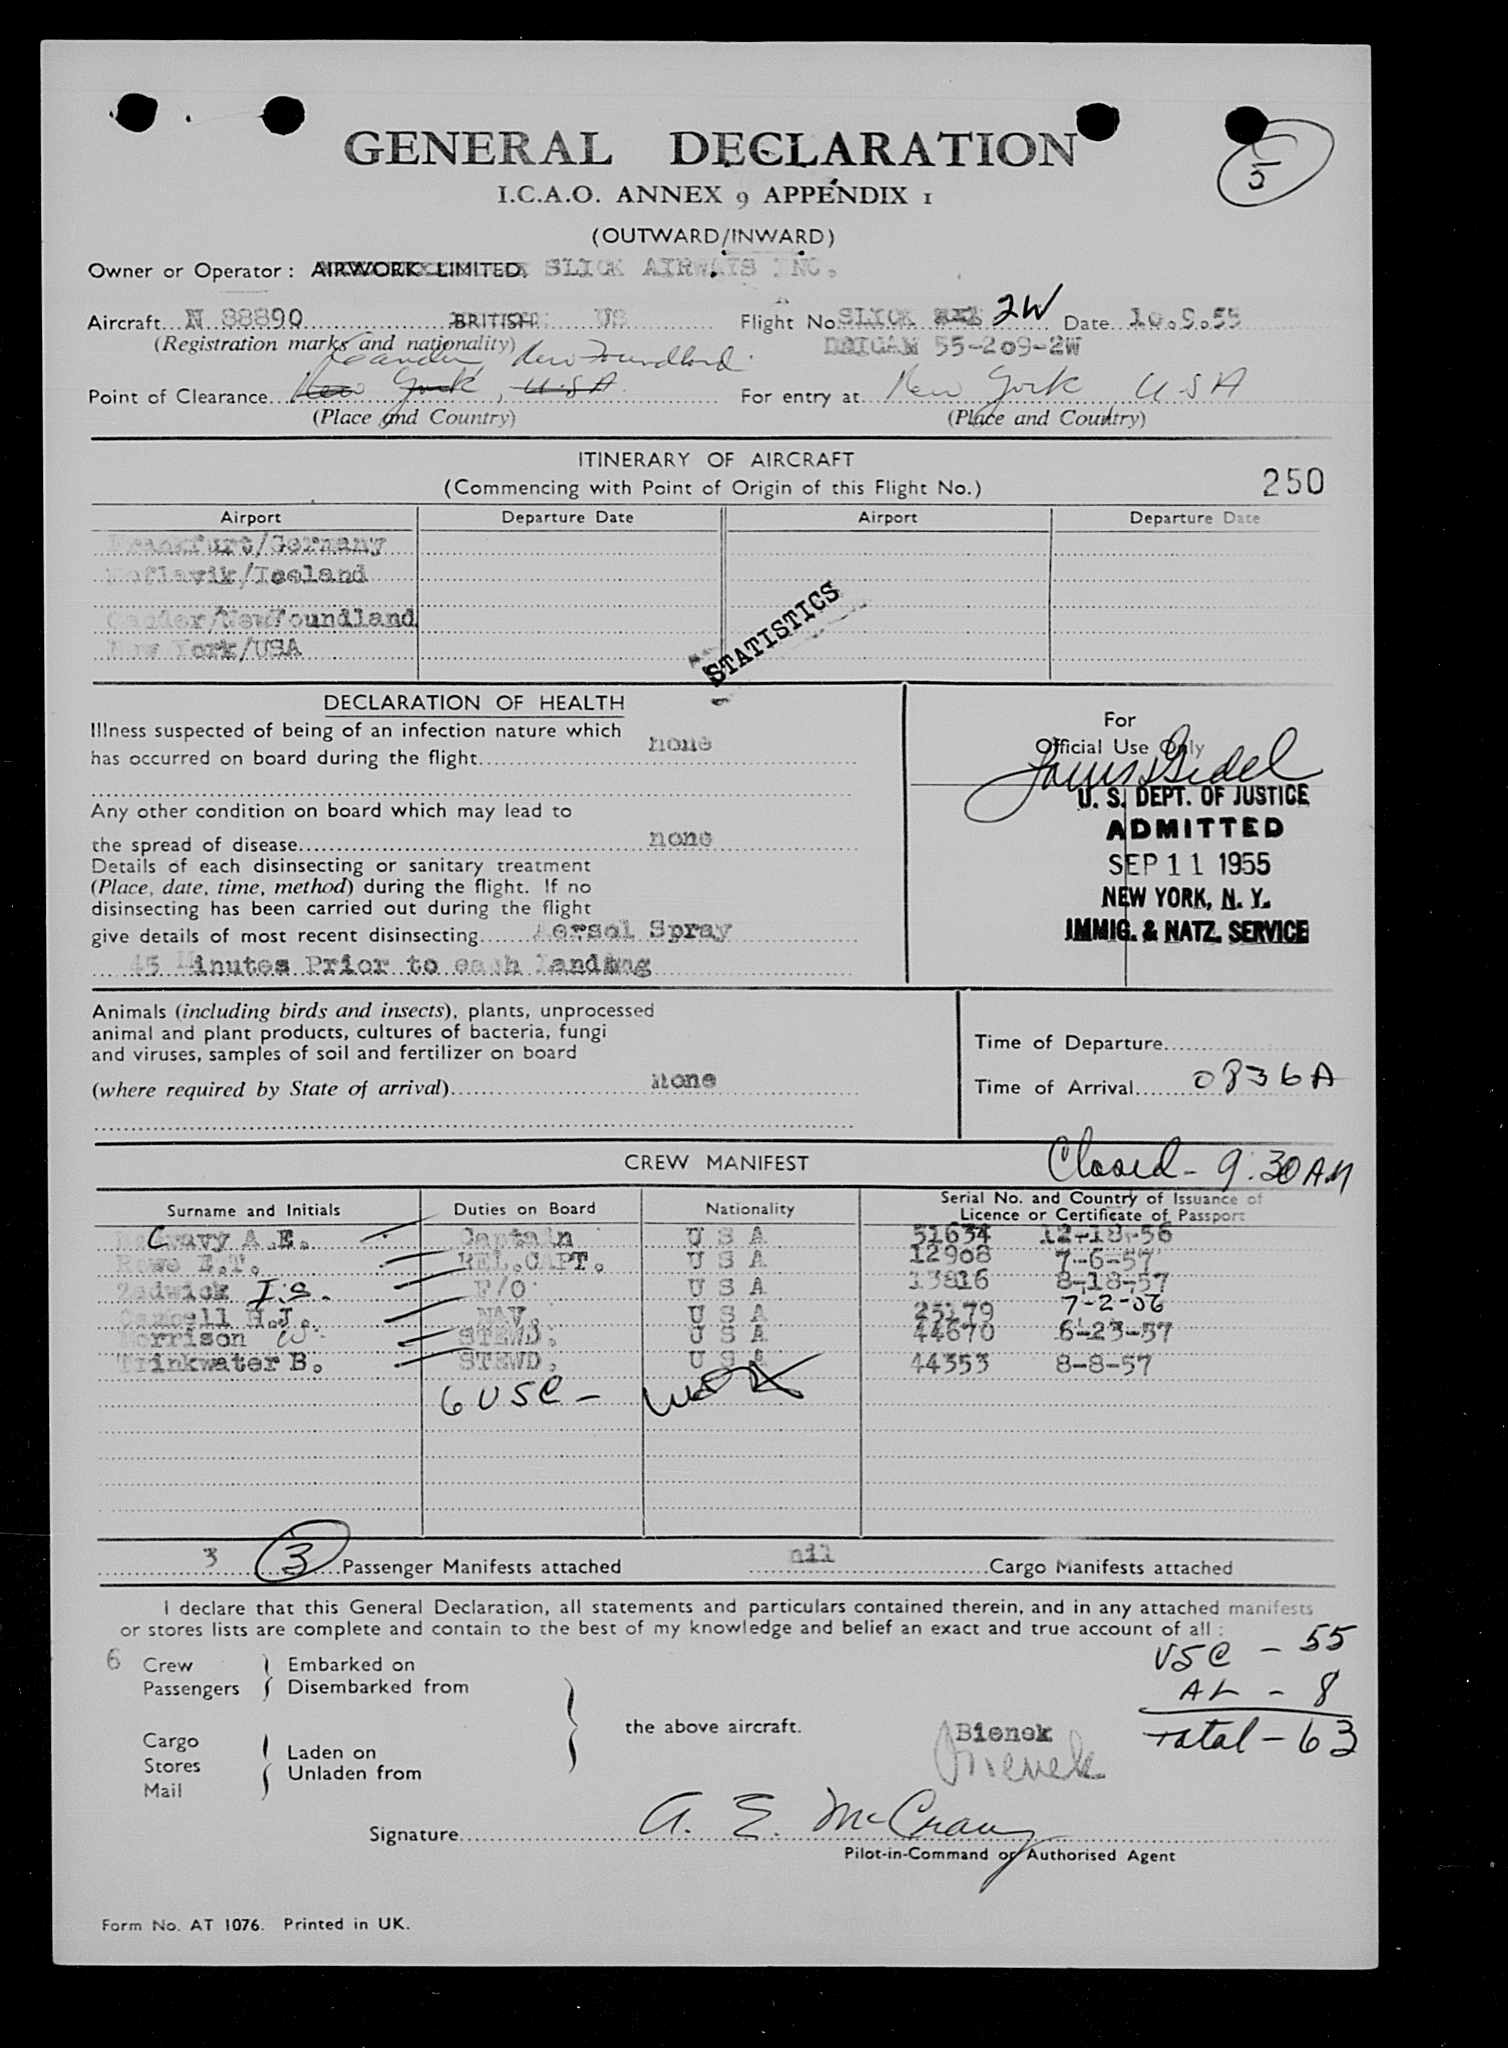 5
GENERAL DECLARATION
I.C.A.O. ANNEX 9 APPENDIX 1
(OUTWARD/INWARD)
Owner or Operator: AIRWORK LIMITED. SLICK AIRWAYS INC.
Aircraft N 88890 BRITISH US Flight No. SLICK 2W Date 10.9.55
(Registration marks and nationality) 55-209-2W
Gander, New Foundland
Point of Clearance New York, U.S.A. For entry at New York U S A
(Place and Country) (Place and Country)
ITINERARY OF AIRCRAFT
(Commencing with Point of Origin of this Flight No.) 250
Airport Departure Date Airport Departure Date
Frankfurt/Germany
Keflavik/Iceland
Gander/NewFoundland
New York/USA
STATISTICS
DECLARATION OF HEALTH
Illness suspected of being of an infection nature which
has occurred on board during the flight none
Any other condition on board which may lead to
the spread of disease none
Details of each disinsecting or sanitary treatment
(Place, date, time, method) during the flight. If no
disinsecting has been carried out during the flight
give details of most recent disinsecting Aersol Spray
45 Minutes Prior to each landing
For
Official Use Only
U. S. DEPT. OF JUSTICE
ADMITTED
SEP 11 1955
NEW YORK, N. Y.
IMMIG. & NATZ. SERVICE
Animals (including birds and insects), plants, unprocessed
animal and plant products, cultures of bacteria, fungi
and viruses, samples of soil and fertilizer on board
(where required by State of arrival) None
Time of Departure
Time of Arrival 0836A
CREW MANIFEST Closed - 9:30 AM
Surname and Initials Duties on Board Nationality Serial No. and Country of Issuance of Licence or Certificate of Passport
McCravy A.E. Captain U S A 51634 12-18-56
Rowe E.T. REL.CAPT. U S A 12908 7-6-57
Zedwick I.S. F/O U S A 13816 8-18-57
H.J. NAV. U S A 25179 7-2-56
Morrison W. STEWD. U S A 44670 6-23-57
Trinkwater B. STEWD. U S A 44353 8-8-57
6 USC -
3 3 Passenger Manifests attached nil Cargo Manifests attached
I declare that this General Declaration, all statements and particulars contained therein, and in any attached manifests
or stores lists are complete and contain to the best of my knowledge and belief an exact and true account of all :
6 Crew
Passengers
Embarked on
Disembarked from
Cargo
Stores
Mail
Laden on
Unladen from
the above aircraft.
USC - 55
AL - 8
Total - 63
Bienek
Bienek
Signature A. E. McCravy
Pilot-in-Command or Authorised Agent
Form No. AT 1076. Printed in UK.